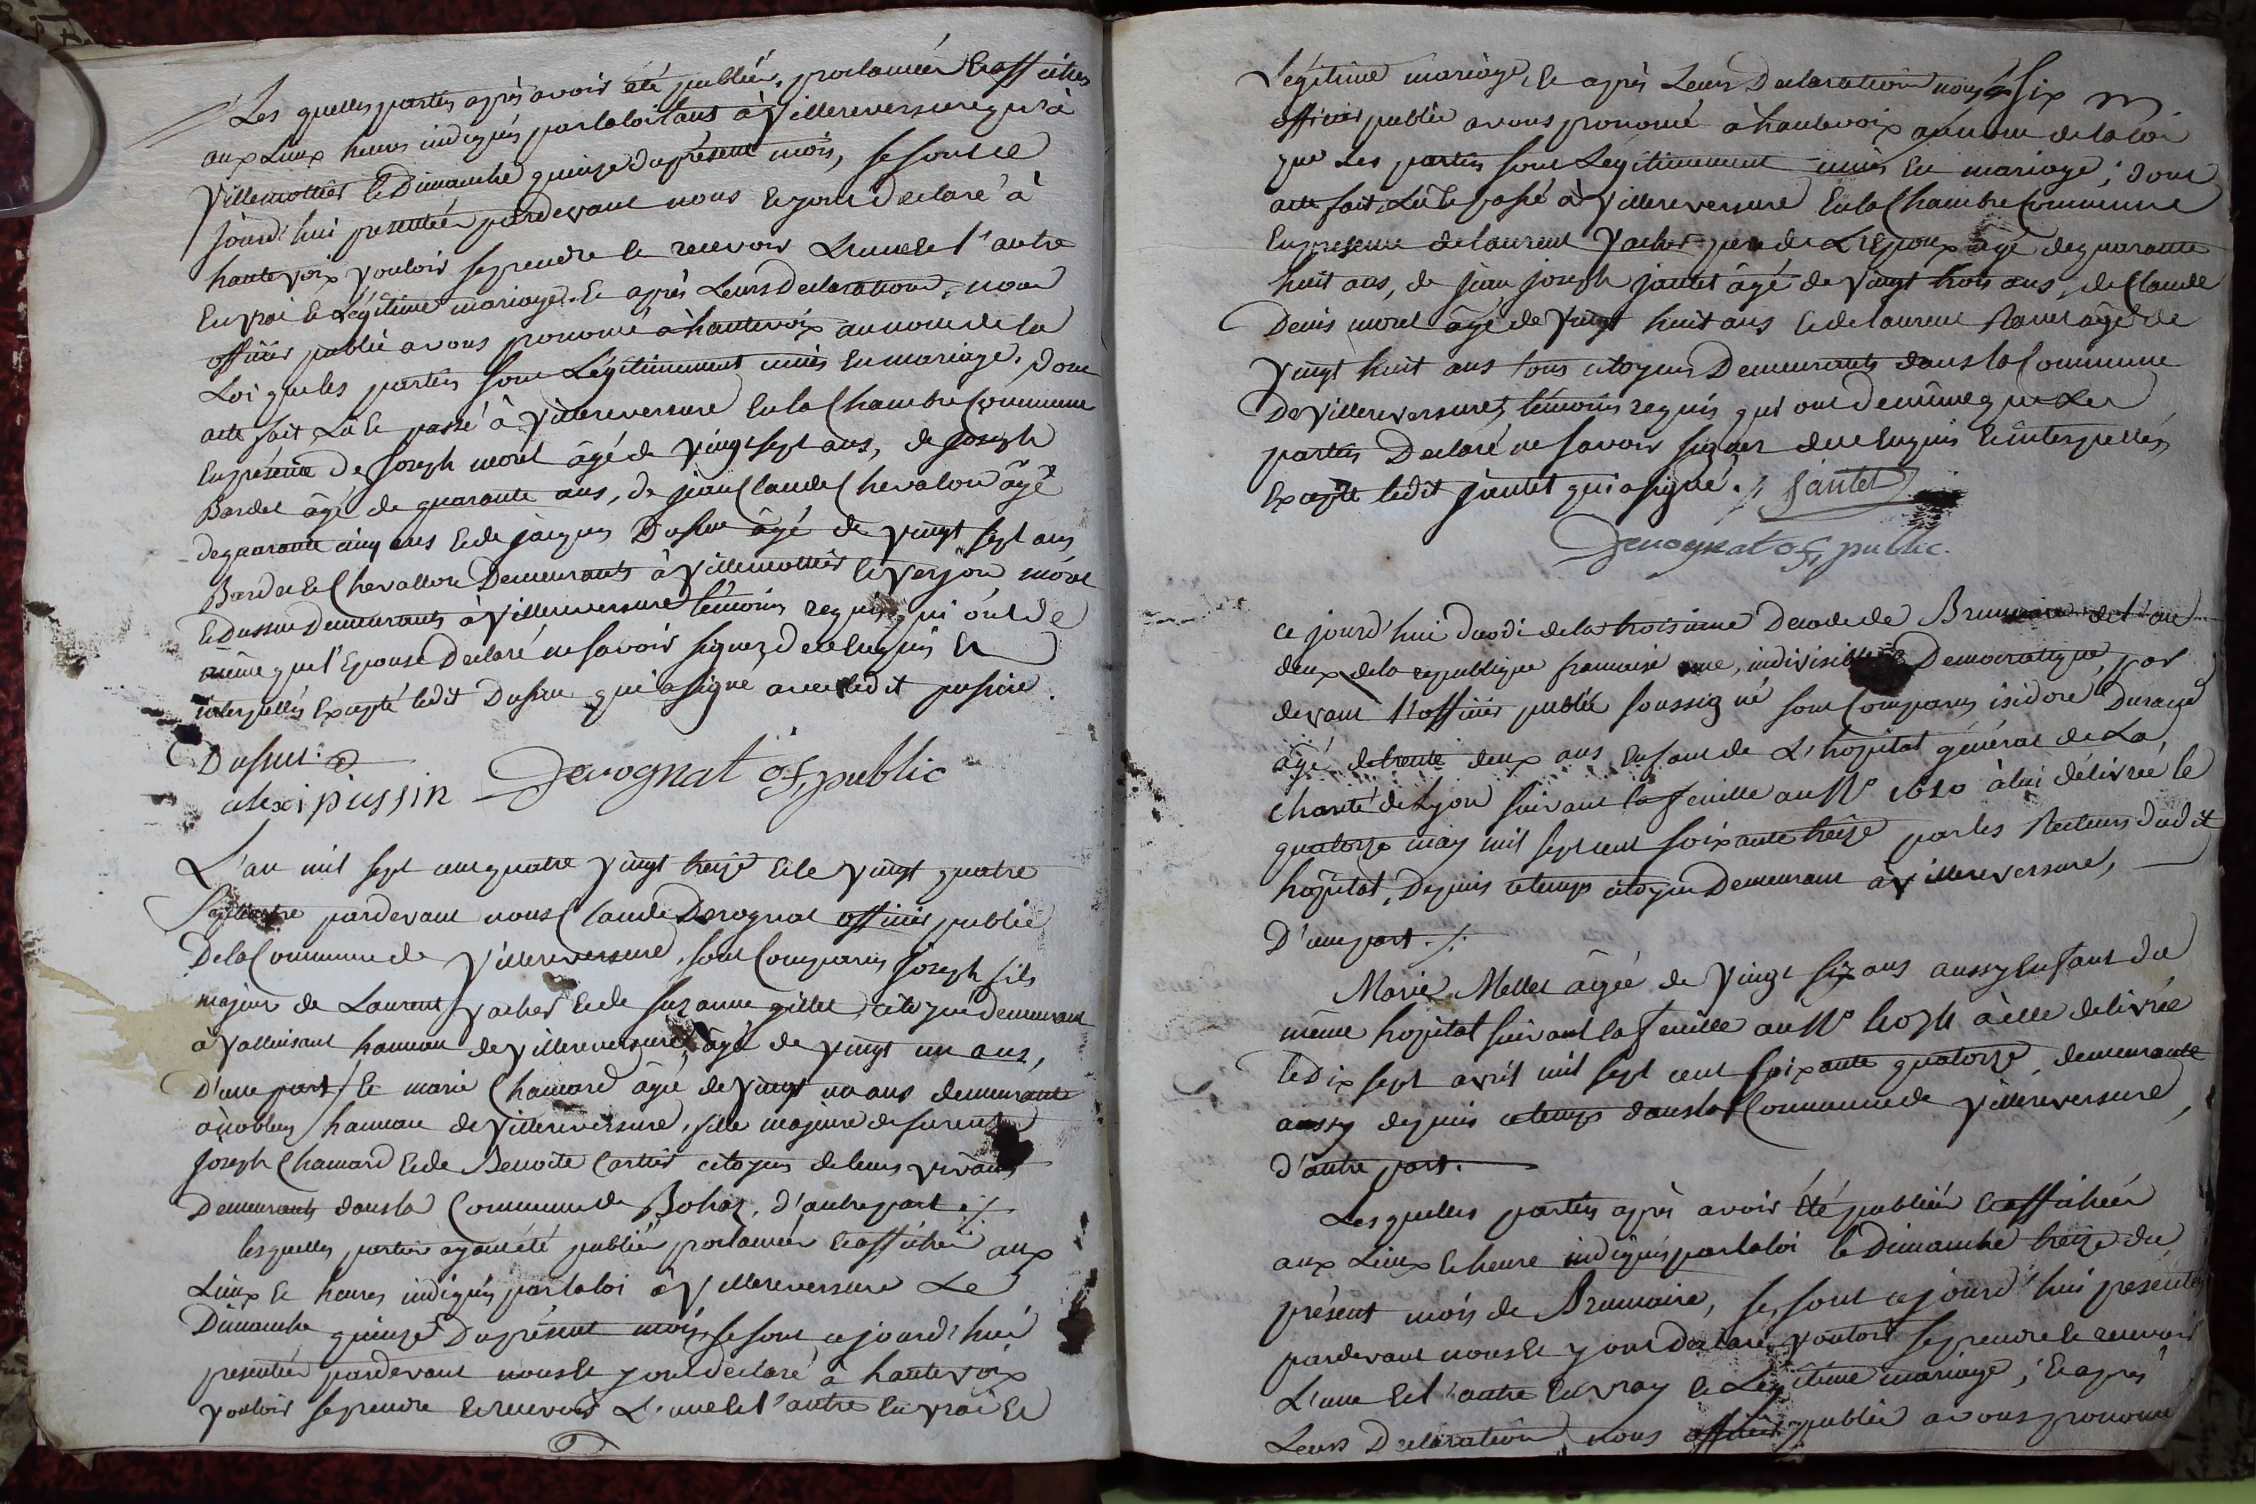 Les quelles parties après avoir été publiées, proclamées et affichées
aux lieux heures indiqués par la loi tant à Villereversure qu'à
Villemottier le Dimanche quinze du présent mois, se sont ce
jourd'hui presentées pardevant nous et y ont declaré à
haute voix vouloir se prendre et recevoir L'une et l'autre
En vrai et Légitime mariage. Et après Leurs Declarations, nous
officier public avons prononcé à haute voix au nom de la
Loi que les parties sont Légitimement unies En mariage. Dont
acte fait, Lû et passé à Villereversure En la Chambre Commune
En présence de Joseph morel âgé de vingt sept ans, de joseph
Bardet âgé de quarante ans, de jean Claude Chevalon âgé
de quarante cinq ans et de jacques Dussue âgé de vingt sept ans
Bardet et Chevallon Demeurants à Villemottier et Verjon, morel
et Dussue Demeurants à Villereversure témoins requis, qui ont de
même que l'Epouse Declaré ne savoir signer, de ce Enquis Et
interpellés Excepté ledit Dussue qui a signé avec ledit pussin.
Dussue
alexi pussin Derognat of. public
L'an mil sept cent quatre vingt treize et le vingt quatre
Septembre pardevant nous Claude Derognat officier public
De la Commune de Villereversure, sont Comparus Joseph fils
majeur de Laurent Vacher et de suzanne gillet, citoyen demeurant
à hameau de Villereversure, âgé de vingt un ans,
D'une part, Et marie Chanard âgée de vingt un ans demeurante
à noblens hameau de Villereversure, fille majeure de furent
Joseph Chanard et de Benoite Cartier citoyens de leurs vivants
Demeurants dans la Commune de Bohaz, d'autre part ./.
lesquelles parties ayant été publiées proclamées et affichées aux
Lieux et heures indiqués par la loi à Villereversure Le
Dimanche quinze Du présent mois, se sont ce jourd'hui
presentées pardevant nous et y ont declaré à haute voix
vouloir se prendre et recevoir L'une et l'autre En vrai Et
Légitime mariage, Et après Leurs Declarations nous
officier public avons prononcé à haute voix au nom de la loi
que Les parties sont Légitimement unies En mariage; dont
acte fait, Lû et passé à Villereversure En la Chambre Commune
En presence de laurent Vacher pere de L'Epoux âgé de quarante
huit ans, de jean joseph jantet âgé de vingt trois ans, de Claude
Denis morel âgé de vingt huit ans et de laurent âgé de
vingt huit ans tous citoyens Demeurants dans la Commune
De Villereversure, témoins requis qui ont de même que Les
parties Declaré ne savoir signer de ce Enquis et interpellés
Excepté ledit jantet qui a signé ./. jantet
Derognat of. public.
ce jourd'hui duodi de la troisieme Decade de Brumaire de l'an
deux de la republique francaise une, indivisible et Democratique, par
devant l'officier public soussigné sont Comparus isidore Durand
âgé de trente deux ans Enfant de L'hopital général de La
charité de Lyon suivant la feuille au N° 1610 à lui délivrée le
quatorze may mil sept cent soixante treize par les Recteurs dudit
hopital, Depuis ce temps citoyen Demeurant à Villereversure,
D'une part ./.
Marie Mellet âgée de vingt six ans aussy Enfant du
même hopital suivant la feuille au N° à elle delivrée
le Dix sept avril mil sept cent soixante quatorze, demeurante
aussy depuis ce temps dans la Commune de Villereversure,
d'autre part.
Lesquelles parties après avoir été publiées et affichées
aux Lieux et heure indiqués par la loi le Dimanche treize du
présent mois de Brumaire, se sont ce jourd'hui presentées
pardevant nous et y ont Declaré vouloir se prendre et recevoir
L'une et l'autre En vray et Légitime mariage; et après
Leurs Declarations nous officier public avons prononcé